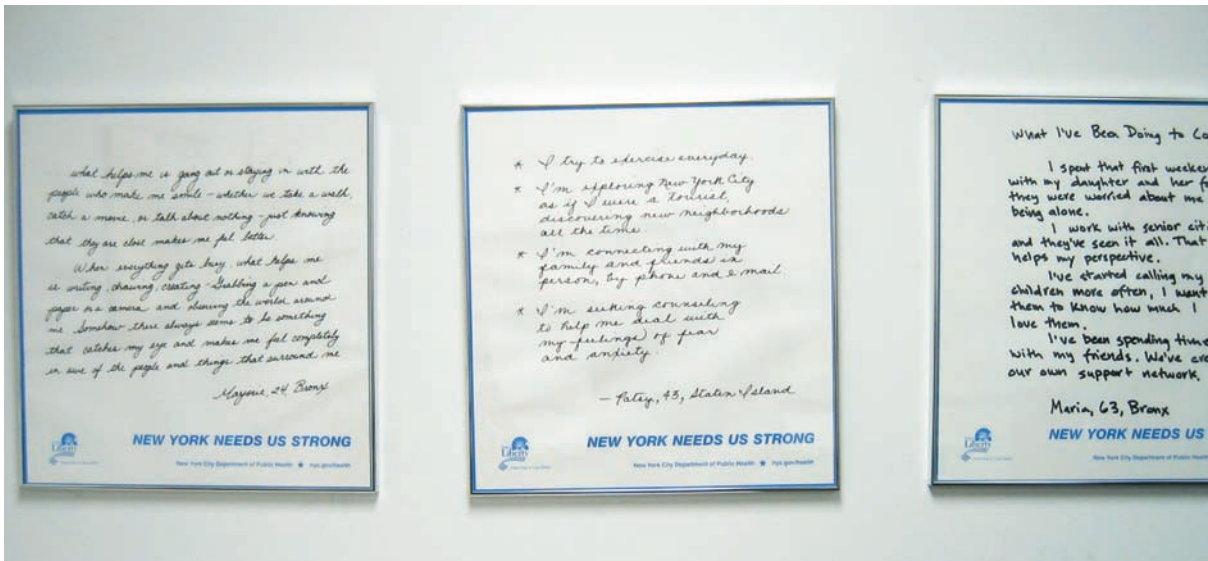 what helps me is going out or staying in with the
people who make me smile - whether we take a walk,
catch a movie, or talk about nothing - just knowing
that they are close makes me feel better.
When everything gets busy, what helps me
is writing, drawing, creating - Grabbing a pen and
paper or a camera and observing the world around
me. Somehow there always seems to be something
that catches my eye and makes me feel completely
in awe of the people and things that surround me
Marjorie, 24, Bronx
Liberty
NEW YORK NEEDS US STRONG
New York City Department of Public Health ★ nyc.gov/health
* I try to exercise everyday.
* I'm exploring New York City
as if I were a tourist,
discovering new neighborhoods
all the time.
* I'm connecting with my
family and friends in
person, by phone and e mail.
* I'm seeking counseling
to help me deal with
my feelings of fear
and anxiety.
— Patsy, 43, Staten Island
Liberty
NEW YORK NEEDS US STRONG
New York City Department of Public Health ★ nyc.gov/health
What I've Been Doing to Co
I spent that first weeken
with my daughter and her fa
they were worried about me
being alone.
I work with senior citi
and they've seen it all. That
helps my perspective.
I've started calling my
children more often, I want
them to know how much I
love them.
I've been spending time
with my friends. We've cre
our own support network.
Maria, 63, Bronx
Liberty
NEW YORK NEEDS US
New York City Department of Public Health